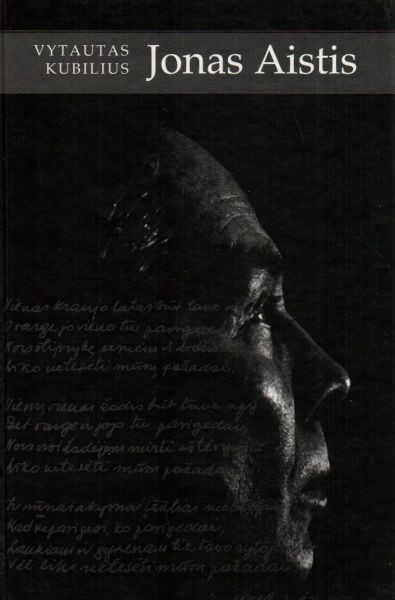 VYTAUTAS
KUBILIUS
Jonas Aistis
Vienas kraujo lašas būt tave
O varge, jo vieno tu pasigedai,
Nors stiprybę semėm iš
Liko netesėti mūsų pažadai.
vienas žodis būt tave
Bet varge ir jojo tu pasigedai,
Nors visi žadėjom mirti
Liko netesėti mūsų pažadai
Kad nepasigesi, ko pasigedai,
Laukiam ir gyvenam tik tavo
Vėl liks netesėti mūsų pažadai